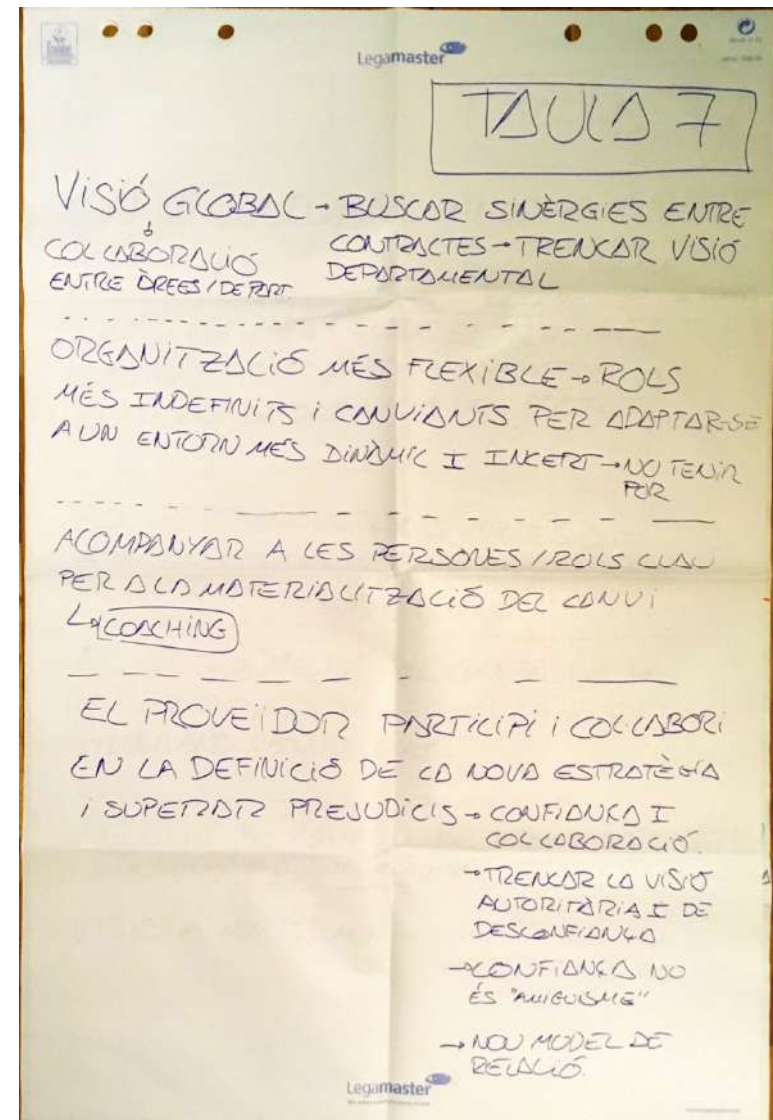 Legamaster
TAULA 7
VISIÓ GLOBAL → BUSCAR SINÈRGIES ENTRE
CONTRACTES → TRENCAR VISIÓ
DEPARTAMENTAL
↓
COL·LABORACIÓ
ENTRE ÀREES / DEPART.
ORGANITZACIÓ MÉS FLEXIBLE → ROLS
MÉS INDEFINITS i CANVIANTS PER ADAPTAR-SE
A UN ENTORN MÉS DINÀMIC I INCERT → NO TENIR
POR
ACOMPANYAR A LES PERSONES / ROLS CLAU
PER A LA MATERIALITZACIÓ DEL CANVI
↳ COACHING
EL PROVEÏDOR PARTICIPI i COL·LABORI
EN LA DEFINICIÓ DE LA NOVA ESTRATÈGIA
i SUPERAR PREJUDICIS → CONFIANÇA I
COL·LABORACIÓ.
→ TRENCAR LA VISIÓ
AUTORITÀRIA I DE
DESCONFIANÇA
→ CONFIANÇA NO
ÉS "AMIGUISME"
→ NOU MODEL DE
RELACIÓ.
Legamaster